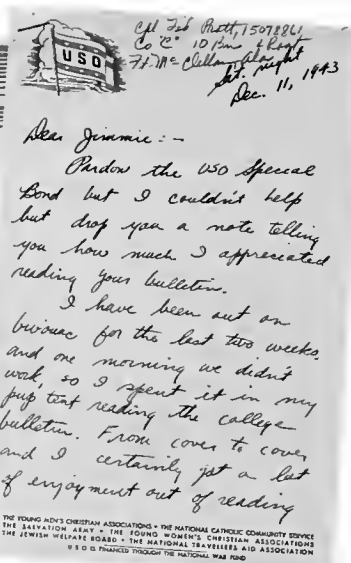 Cpl. Fed Pratt, 15078861
Co "C" 10 Bn 4 Regt
Ft. Mc Clellan, Ala.
Sat. night
Dec. 11, 1943
USO
Dear Jimmie : -
Pardon the USO Special
Bond but I couldn't help
but drop you a note telling
you how much I appreciated
reading your bulletin.
I have been out on
bivouac for the last two weeks,
and one morning we didn't
work, so I spent it in my
pup tent reading the college
bulletin. From cover to cover
and I certainly got a lot
of enjoyment out of reading
THE YOUNG MEN'S CHRISTIAN ASSOCIATIONS • THE NATIONAL CATHOLIC COMMUNITY SERVICE
THE SALVATION ARMY • THE YOUNG WOMEN'S CHRISTIAN ASSOCIATIONS
THE JEWISH WELFARE BOARD • THE NATIONAL TRAVELLERS AID ASSOCIATION
U S O IS FINANCED THROUGH THE NATIONAL WAR FUND